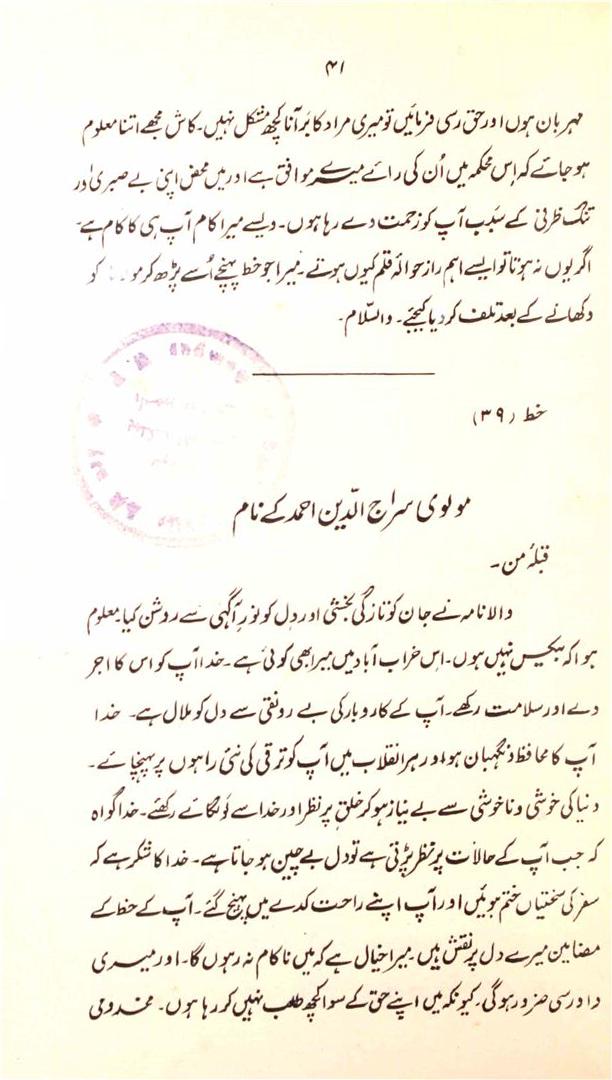 ۴۱
مہربان ہوں اور حق رسی فرمائیں تو میری مراد کا بر آنا کچھ مشکل نہیں۔ کاش مجھے اتنا معلوم
ہو جائے کہ اِس محکمہ میں اُن کی رائے میرے موافق ہے اور میں محض اپنی بے صبری اور
تنگ ظرفی کے سبب آپ کو زحمت دے رہا ہوں۔ ویسے میرا کام آپ ہی کا کام ہے۔
اگر یوں نہ ہوتا تو ایسے اہم راز حوالۂ قلم کیوں ہوتے۔ میرا جو خط پہنچے اُسے پڑھ کر کو
دکھانے کے بعد تلف کر دیا کیجئے۔ والسّلام۔
خط (۳۹)
مولوی سراج الدّین احمد کے نام
قبلۂ من۔
والا نامہ نے جان کو تازگی بخشی اور دل کو نورِ آگہی سے روشن کیا۔ معلوم
ہوا کہ بیکس نہیں ہوں۔ اِس خراب آباد میں میرا بھی کوئی ہے۔ خدا آپ کو اس کا اجر
دے اور سلامت رکھے۔ آپ کے کاروبار کی بے رونقی سے دل کو ملال ہے۔ خدا
آپ کا محافظ و نگہبان ہو اور ہر انقلاب میں آپ کو ترقی کی نئی راہوں پر پہنچائے۔
دنیا کی خوشی و ناخوشی سے بے نیاز ہو کر خلق پر نظر اور خدا سے لَو لگائے رکھئے۔ خدا گواہ
کہ جب آپ کے حالات پر نظر پڑتی ہے تو دل بے چین ہو جاتا ہے۔ خدا کا شکر ہے کہ
سفر کی سختیاں ختم ہوئیں اور آپ اپنے راحت کدے میں پہنچ گئے۔ آپ کے خط کے
مضامین میرے دل پر نقش ہیں۔ میرا خیال ہے کہ میں ناکام نہ رہوں گا۔ اور میری
داد رسی ضرور ہوگی۔ کیونکہ میں اپنے حق کے سوا کچھ طلب نہیں کر رہا ہوں۔ مخدومی